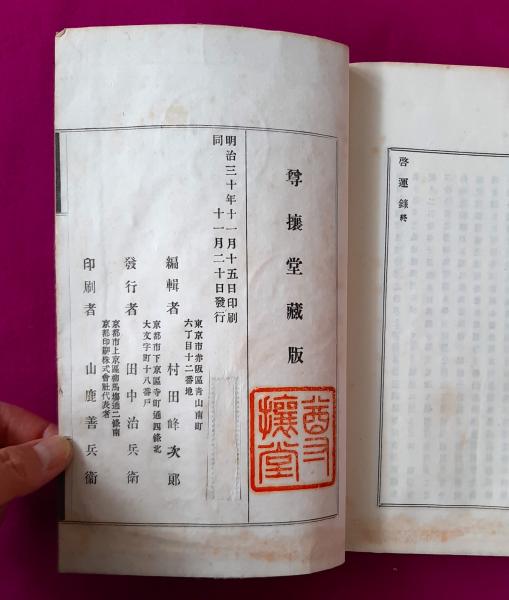 啓運錄終
尊攘堂藏版
尊攘堂
明治三十年十一月十五日印刷
同　　　十一月二十日發行
東京市赤阪區青山南町
六丁目十二番地
編輯者　村田峰次郎
京都市下京區寺町通四條北
大文字町十八番戸
發行者　田中治兵衛
京都市上京區柳馬塲通二條南
京都印刷株式會社代表者
印刷者　山鹿善兵衞